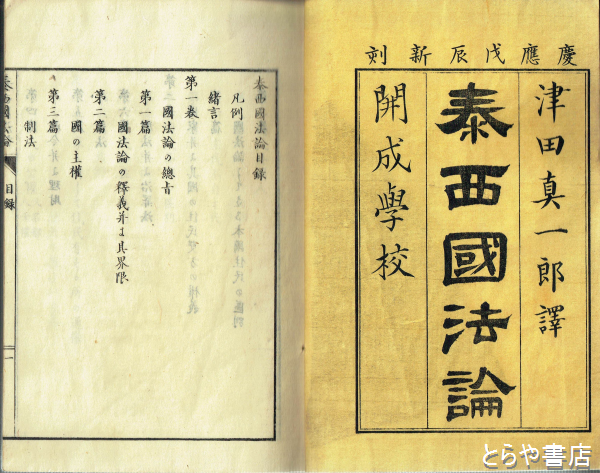 慶應戊辰新刻
津田真一郎譯
泰西國法論
開成學校
泰西國法論目録
凡例
緒言
第一表
國法論の總旨
第一篇
國法論の釋義并ま其界限
第二篇
國の主權
第三篇
制法
泰西國法論
目録
一
とらや書店